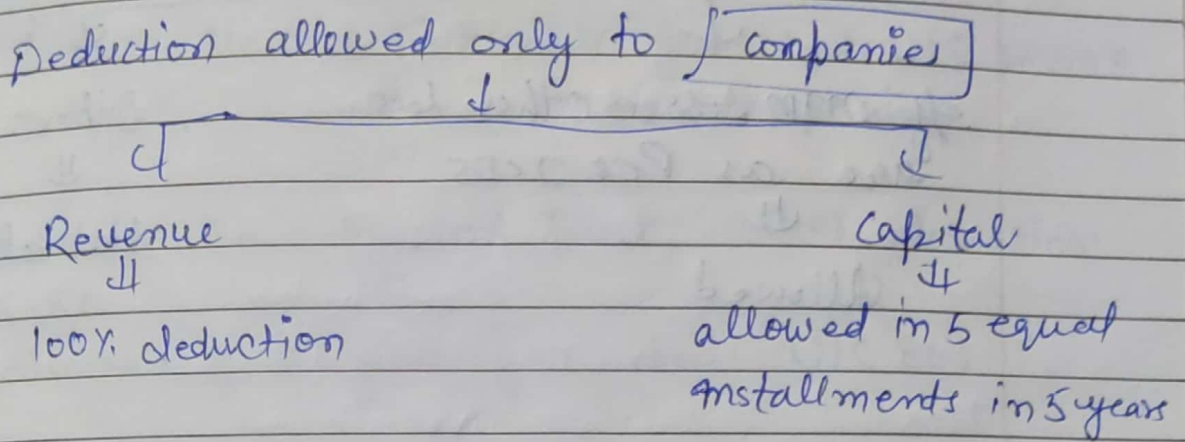 Deduction allowed only to companies
Revenue Capital
100% deduction allowed in 5 equal
installments in 5 years